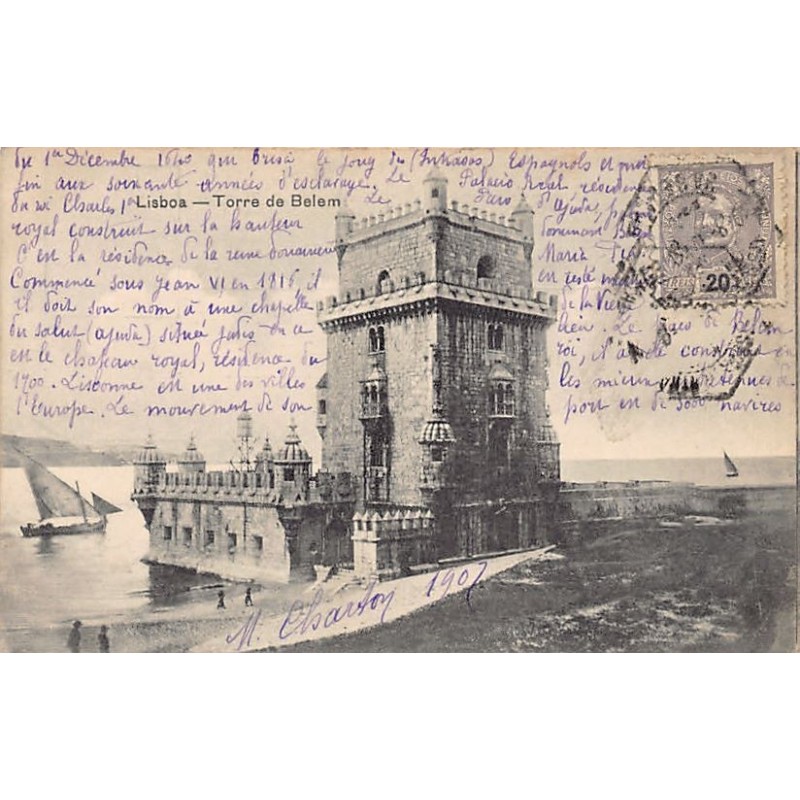 du 1er Décembre 1640 qui brisa le joug des (Intrusos) Espagnols et mit
fin aux soixante années d'esclavage. Le Palacio Real, résidence
du roi Charles 1er Le Paco d'ajuda, 
royal construit sur la hauteur dominant Belem
C'est la résidence de la reine douairière Maria Pia
Commencé sous Jean VI en 1816, il en resté
il doit son nom à une chapelle de la Vierge
du salut (ajuda) située jadis en ce lieu. Le Paco de Belem
en le chateau royal, résidence du roi, il a été construit en
1700. Lisbonne est une des villes les mieux de
l'Europe. Le mouvement de son port est de 5000 navires
Lisboa — Torre de Belem
20
M. Charton 1907